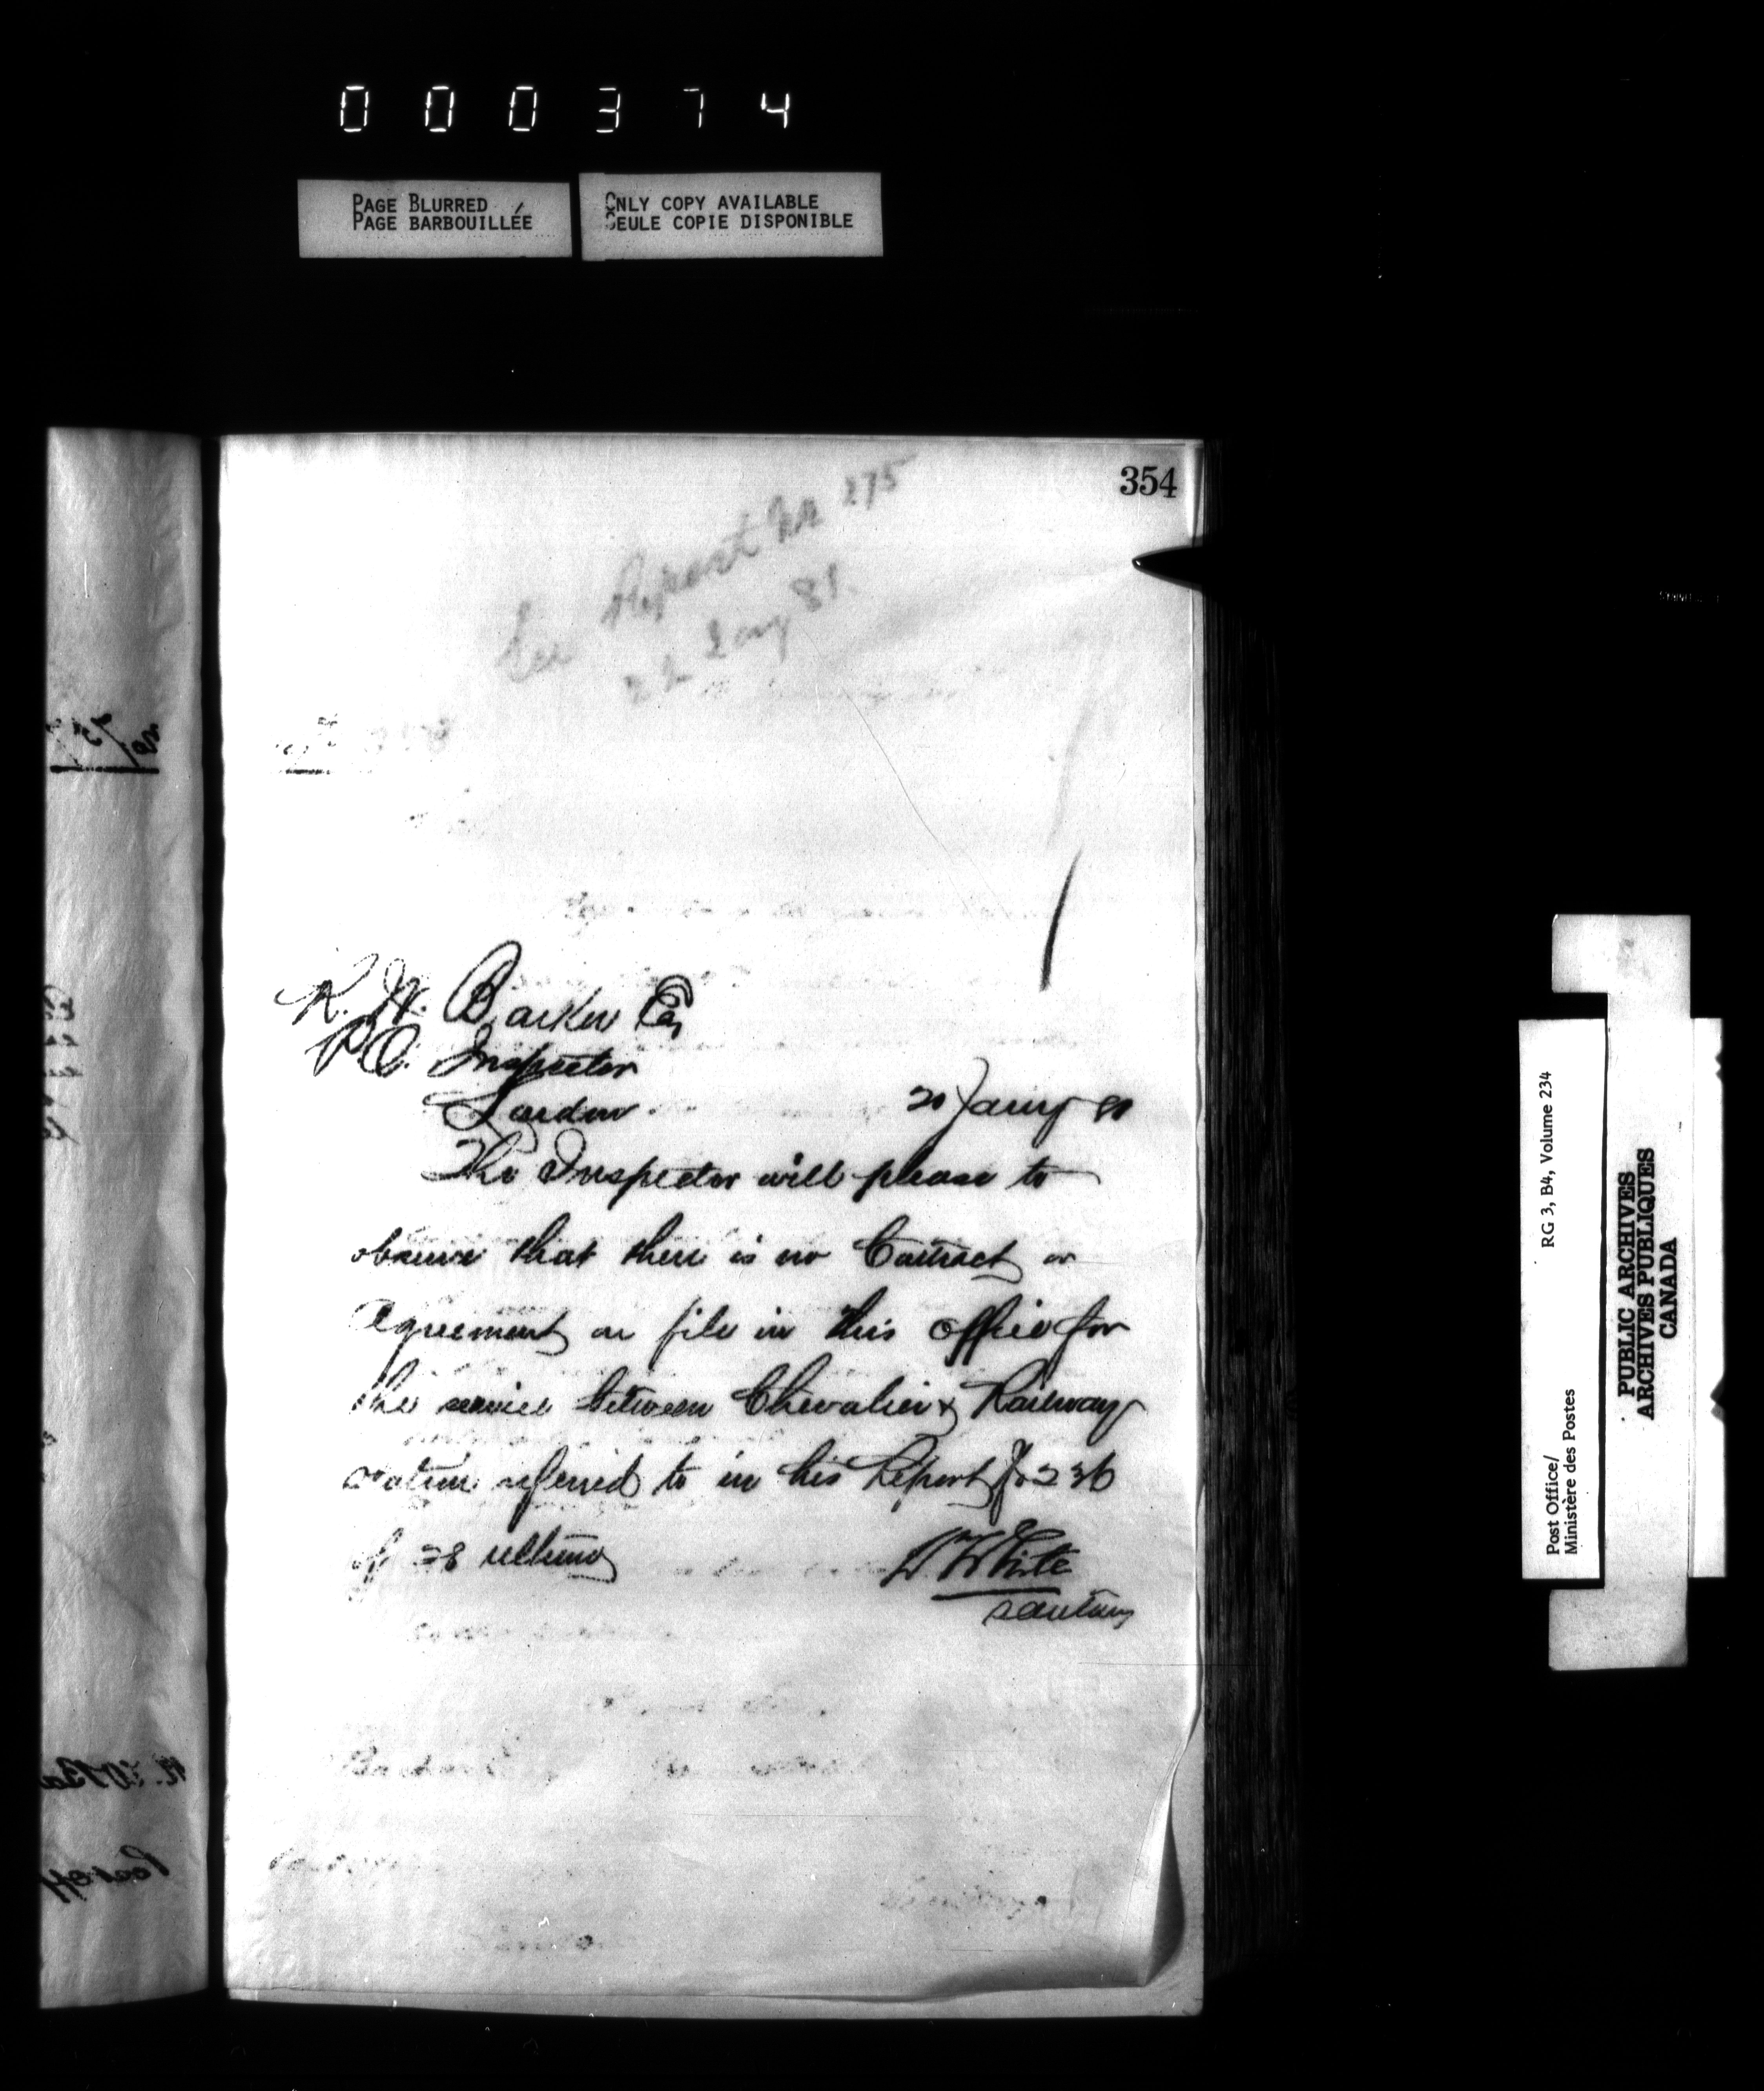 000374
PAGE BLURRED
PAGE BARBOUILLÉE
ONLY COPY AVAILABLE
SEULE COPIE DISPONIBLE
354
See Report No 275
22 Jany 81.
R. W. Barker Esq
P.O. Inspector
London
20 Jany 81
The Inspector will please to
observe that there is no Contract or
Agreement on file in this office for
the service between Chevalier & Railway
station referred to in his Report No 236
of 28 ultimo
W White
Secretary
RG 3, B4, Volume 234
Post Office/
Ministère des Postes
PUBLIC ARCHIVES
ARCHIVES PUBLIQUES
CANADA